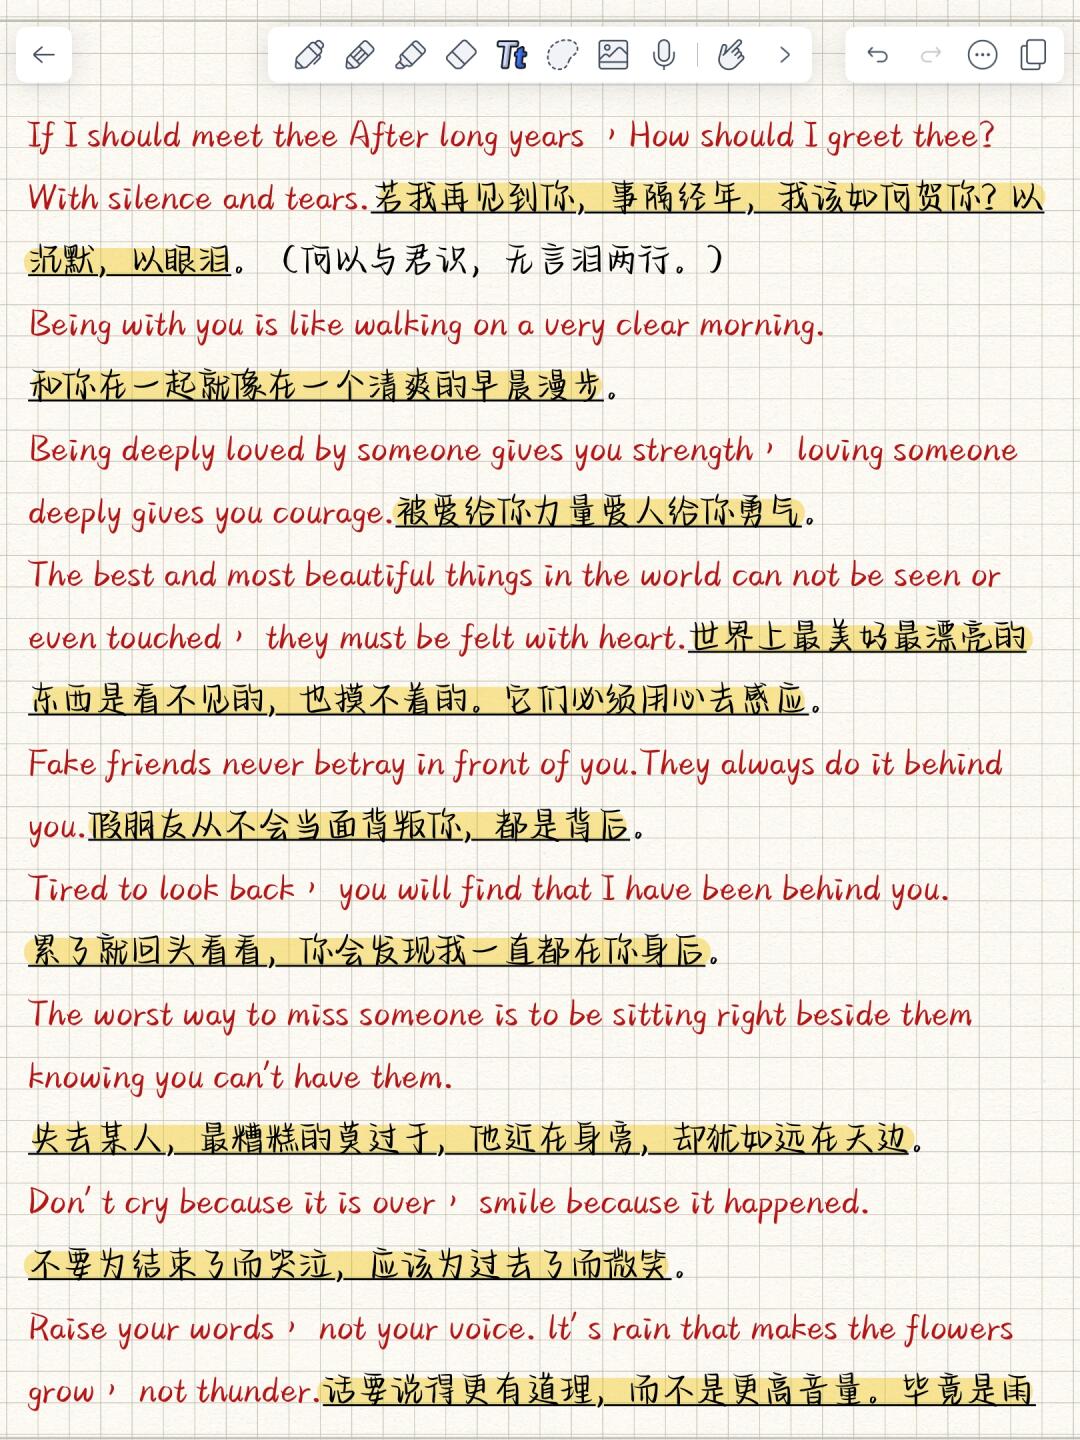 Tt
If I should meet thee After long years ，How should I greet thee?
With silence and tears.若我再见到你，事隔经年，我该如何贺你？以
沉默，以眼泪。（何以与君识，无言泪两行。）
Being with you is like walking on a very clear morning.
和你在一起就像在一个清爽的早晨漫步。
Being deeply loved by someone gives you strength， loving someone
deeply gives you courage.被爱给你力量爱人给你勇气。
The best and most beautiful things in the world can not be seen or
even touched， they must be felt with heart.世界上最美好最漂亮的
东西是看不见的，也摸不着的。它们必须用心去感应。
Fake friends never betray in front of you.They always do it behind
you.假朋友从不会当面背叛你，都是背后。
Tired to look back， you will find that I have been behind you.
累了就回头看看，你会发现我一直都在你身后。
The worst way to miss someone is to be sitting right beside them
knowing you can't have them.
失去某人，最糟糕的莫过于，他近在身旁，却犹如远在天边。
Don' t cry because it is over， smile because it happened.
不要为结束了而哭泣，应该为过去了而微笑。
Raise your words， not your voice. lt' s rain that makes the flowers
grow， not thunder.话要说得更有道理，而不是更高音量。毕竟是雨